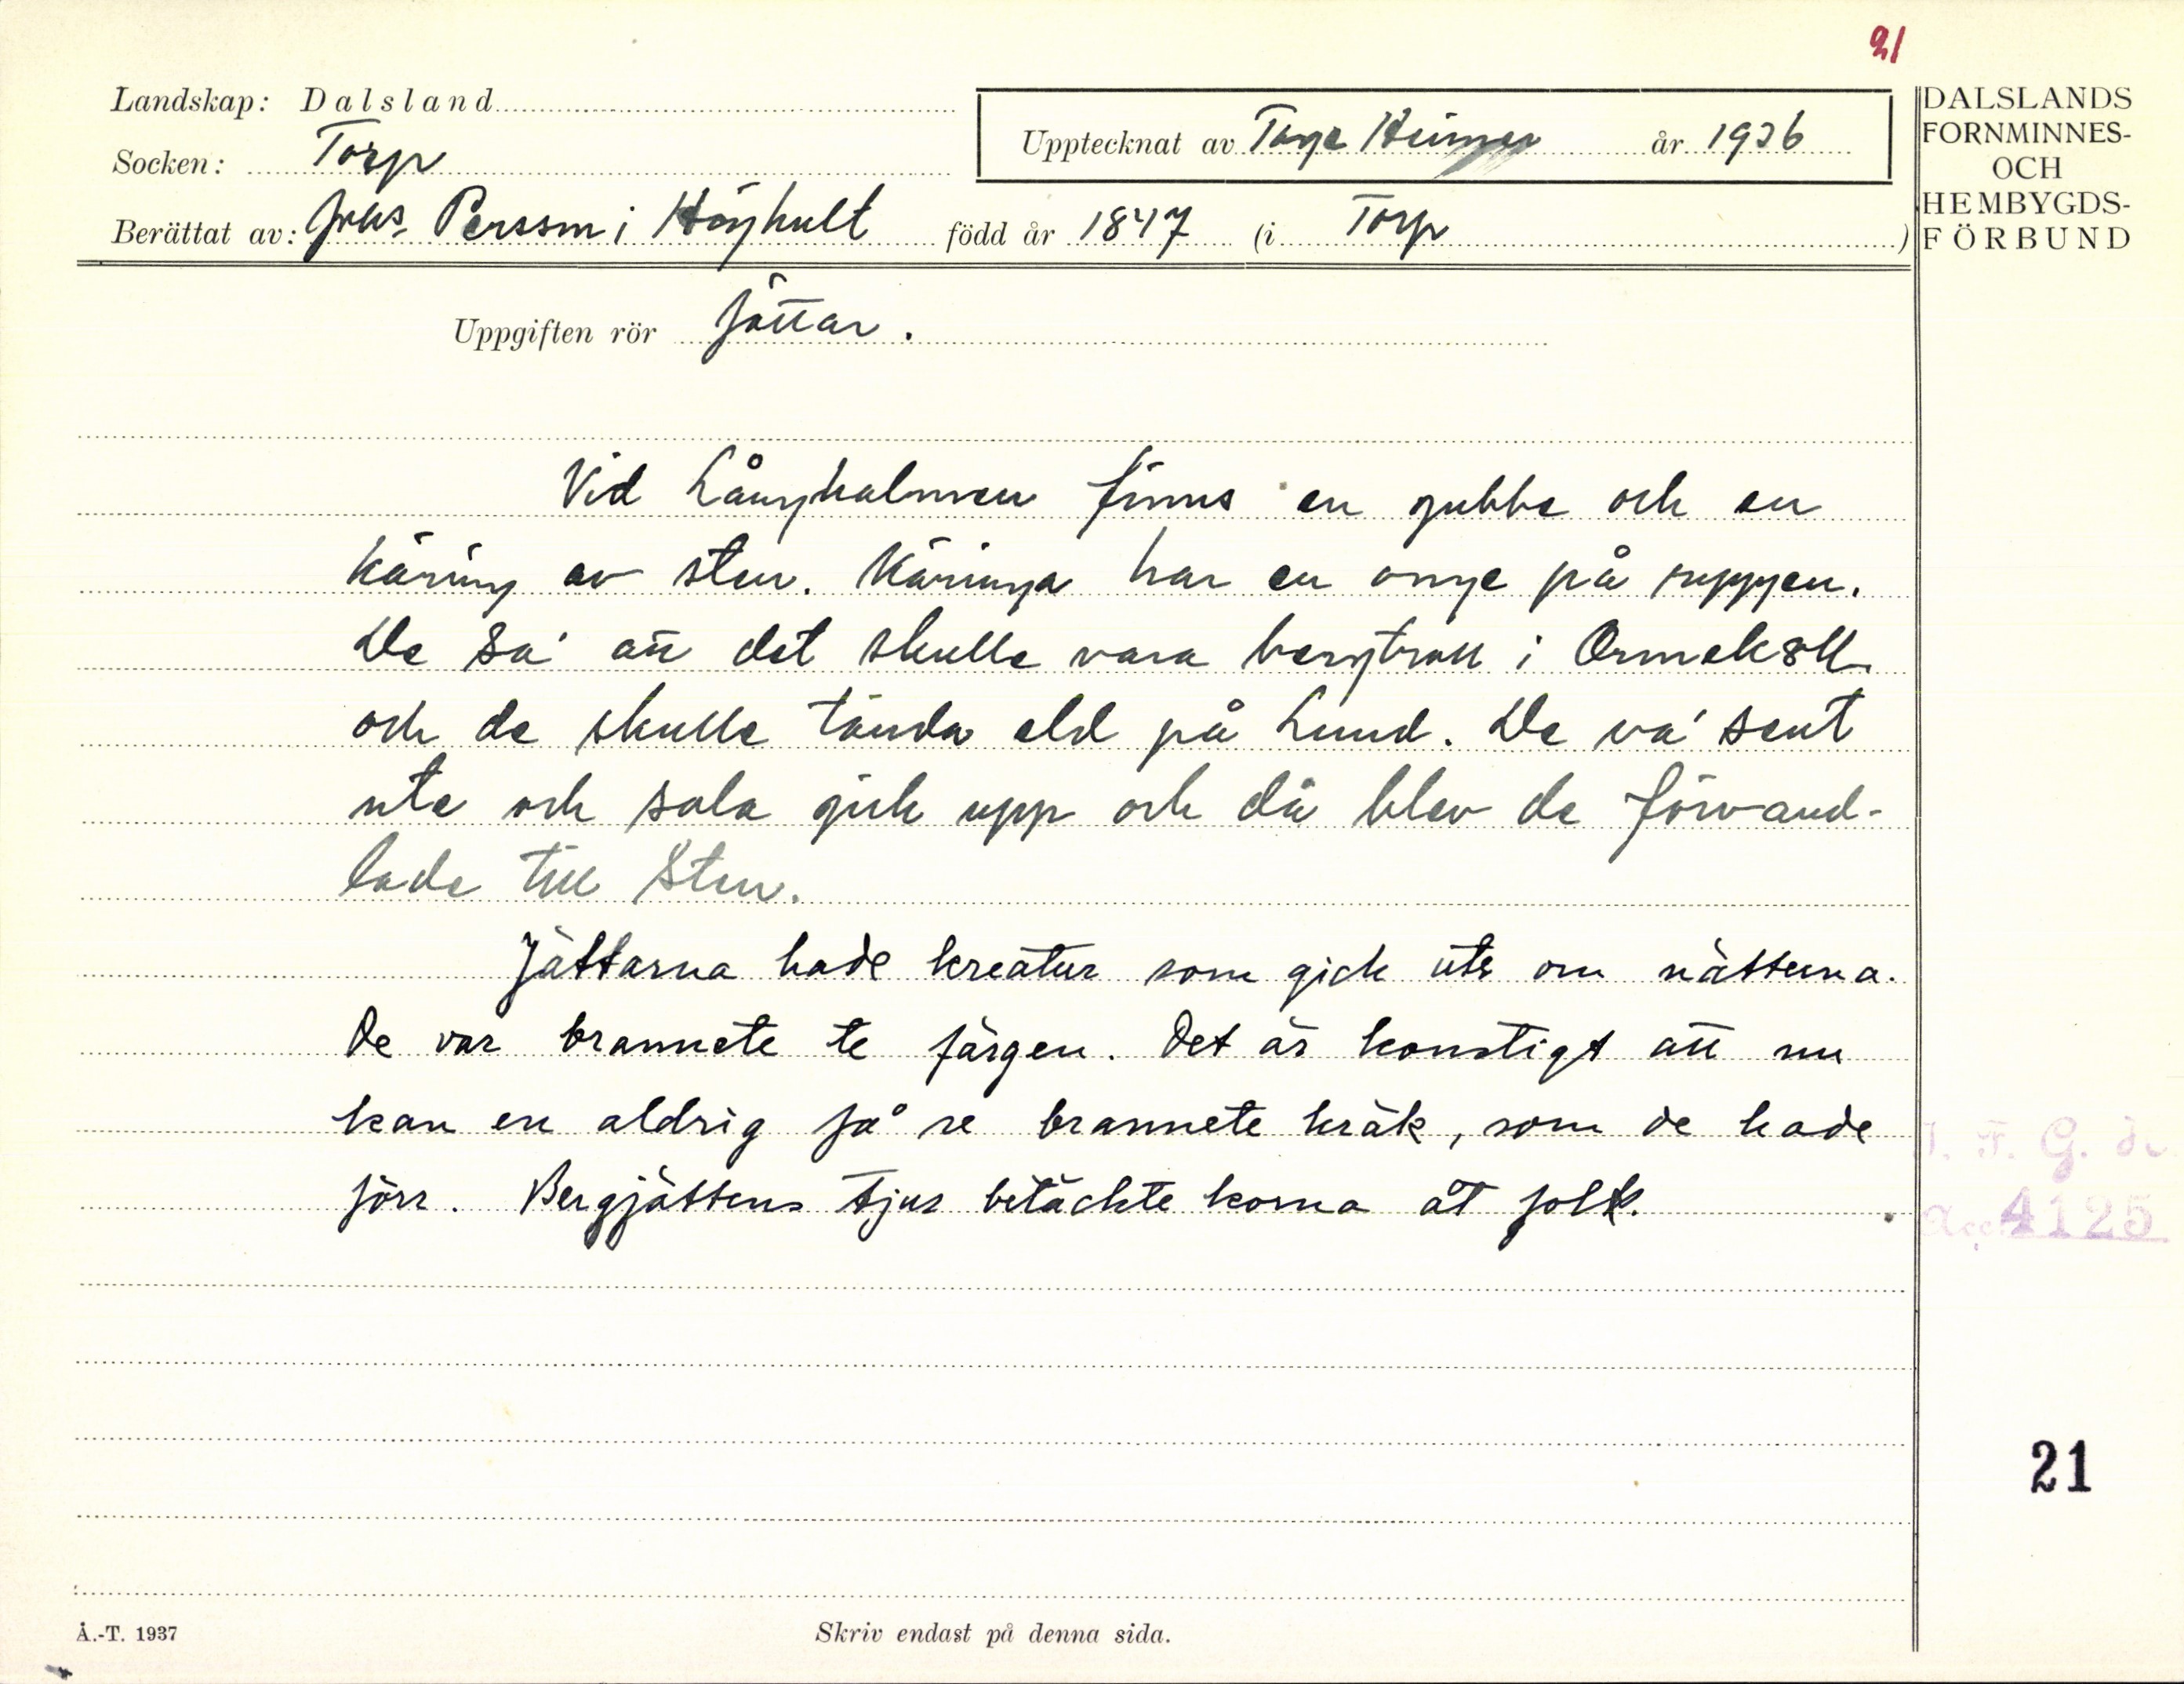 21
Landskap: Dalsland
Socken: Torp
Upptecknat av Tage Heimer år 1936
Berättat av: Johs. Persson i Höghult född år 1847 (i Torp)
DALSLANDS
FORNMINNES-
OCH
HEMBYGDS-
FÖRBUND
Uppgiften rör Jättar.
Vid Långhalmen finns en gubbe och en
käring av sten. Käringa har en onge på ryggen.
De sa' att det skulle vara bergtroll i Ormekåll
och de skulle tända eld på Lund. De va' sent
ute och sola gick upp och då blev de förvand-
lade till sten.
Jättarna hade kreatur som gick ute om nätterna.
De var brannete te färgen. Det är konstigt att nu
kan en aldrig få se brannete kräk, som de hade
förr. Bergjättens tjur betäckte korna åt folk.
I. F. G. s
Acc. 4125
21
Å.-T. 1937
Skriv endast på denna sida.